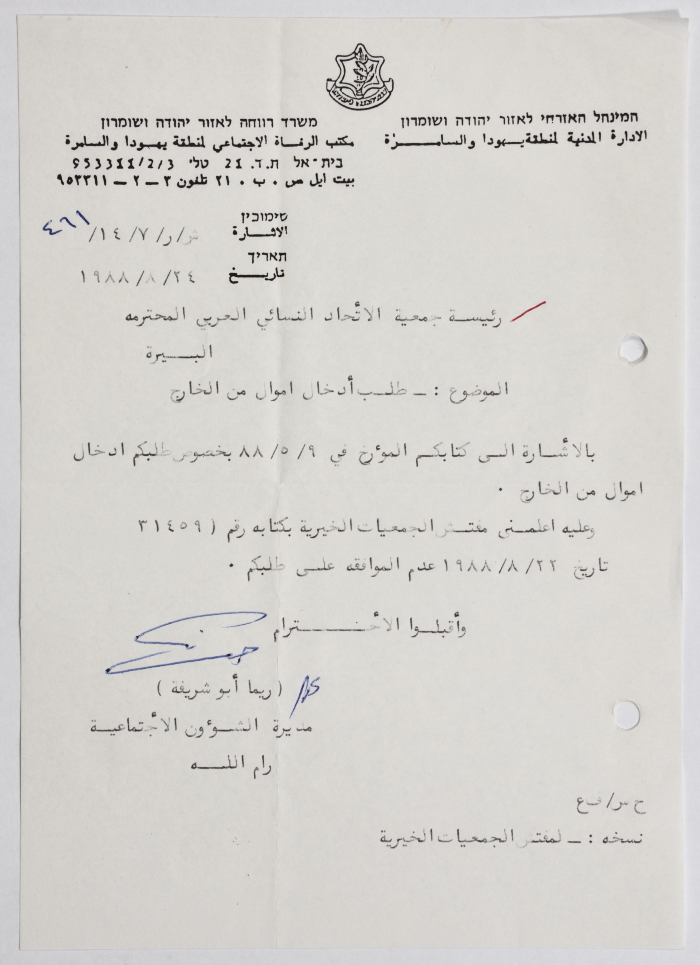 המינהל האזרחי לאזור יהודה ושומרון
الادارة المدنية لمنطقة يهودا والسامرة
משרד רווחה לאזור יהודה ושומרון
مكتب الرفاة الاجتماعي لمنطقة يهودا والسامرة
בית-אל ת.ד. 21 טלי 953311/2/3
بيت ايل ص . ب . ٢١ تلفون ٣ - ٢ - ٩٥٣٣١١
סימוכין
الاشارة ش/ر/٧/١٤/ ٤٦١
תאריך
تاريخ ١٩٨٨/٨/٢٤
رئيسة جمعية الاتحاد النسائي العربي المحترمه
البيرة
الموضوع : - طلب أدخال اموال من الخارج
بالاشارة الى كتابكم المؤرخ في ٨٨/٥/٩ بخصوص طلبكم ادخال
اموال من الخارج .
وعليه اعلمنى مفتش الجمعيات الخيرية بكتابه رقم ( ٣١٤٥٩
تاريخ ١٩٨٨/٨/٢٢ عدم الموافقه على طلبكم .
وأقبلوا الأحترام
( ريما أبو شريفة )
مديرة الشوءون الأجتماعية
رام الله
نسخه : - لمفتش الجمعيات الخيرية